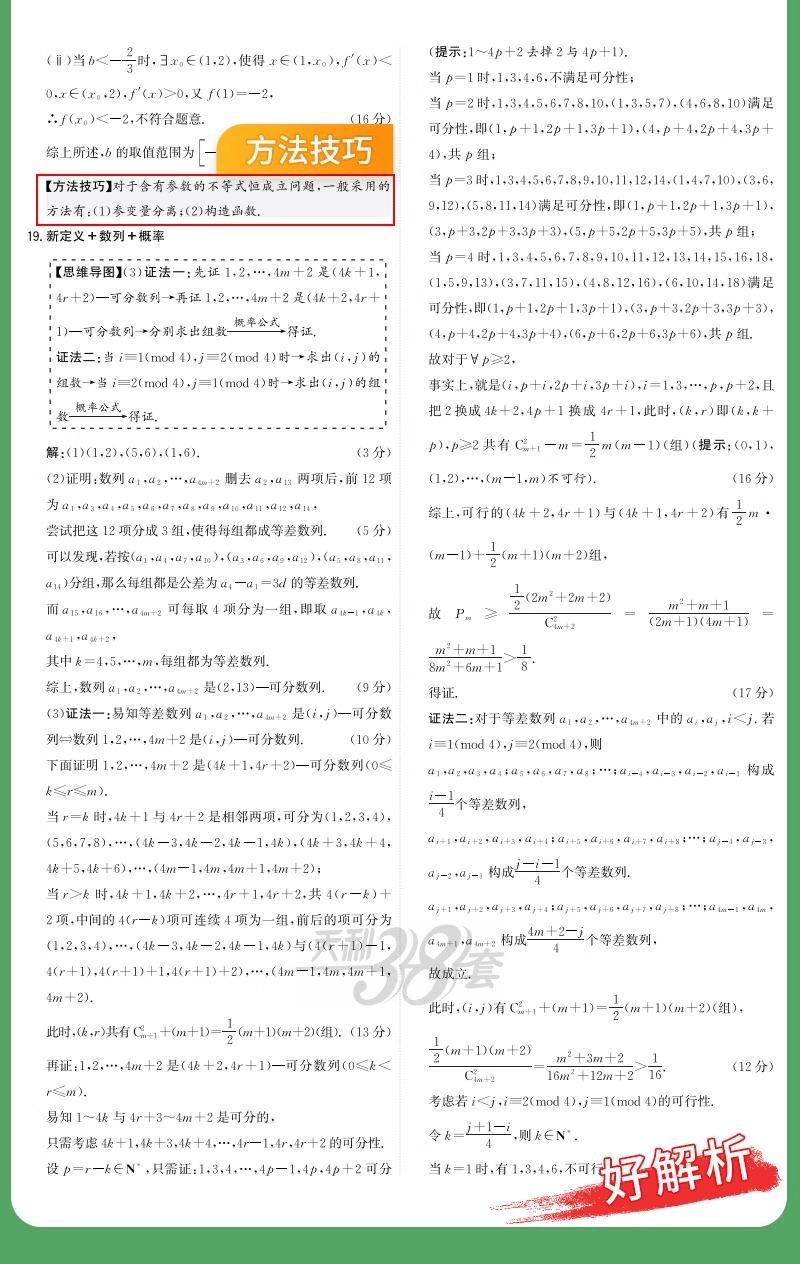 (ⅱ)当b<-2/3时,∃x₀∈(1,2),使得x∈(1,x₀),f′(x)<
0,x∈(x₀,2),f′(x)>0,又f(1)=-2,
∴f(x₀)<-2,不符合题意. (16分)
综上所述,b的取值范围为[-
方法技巧
【方法技巧】对于含有参数的不等式恒成立问题,一般采用的
方法有:(1)参变量分离;(2)构造函数.
19.新定义+数列+概率
【思维导图】(3)证法一:先证1,2,…,4m+2是(4k+1,
4r+2)—可分数列→再证1,2,…,4m+2是(4k+2,4r+
1)—可分数列→分别求出组数 概率公式→得证.
证法二:当i≡1(mod 4),j≡2(mod 4)时→求出(i,j)的
组数→当i≡2(mod 4),j≡1(mod 4)时→求出(i,j)的组
数 概率公式→得证.
解:(1)(1,2),(5,6),(1,6). (3分)
(2)证明:数列a₁,a₂,…,a₄ₘ₊₂删去a₂,a₁₃两项后,前12项
为a₁,a₃,a₄,a₅,a₆,a₇,a₈,a₉,a₁₀,a₁₁,a₁₂,a₁₄,
尝试把这12项分成3组,使得每组都成等差数列. (5分)
可以发现,若按(a₁,a₄,a₇,a₁₀),(a₃,a₆,a₉,a₁₂),(a₅,a₈,a₁₁,
a₁₄)分组,那么每组都是公差为a₄-a₁=3d的等差数列.
而a₁₅,a₁₆,…,a₄ₘ₊₂可每取4项分为一组,即取a₄ₖ₋₁,a₄ₖ,
a₄ₖ₊₁,a₄ₖ₊₂,
其中k=4,5,…,m,每组都为等差数列.
综上,数列a₁,a₂,…,a₄ₘ₊₂是(2,13)—可分数列. (9分)
(3)证法一:易知等差数列a₁,a₂,…,a₄ₘ₊₂是(i,j)—可分数
列⇔数列1,2,…,4m+2是(i,j)—可分数列. (10分)
下面证明1,2,…,4m+2是(4k+1,4r+2)—可分数列(0≤
k≤r≤m).
当r=k时,4k+1与4r+2是相邻两项,可分为(1,2,3,4),
(5,6,7,8),…,(4k-3,4k-2,4k-1,4k),(4k+3,4k+4,
4k+5,4k+6),…,(4m-1,4m,4m+1,4m+2);
当r>k时,4k+1,4k+2,…,4r+1,4r+2,共4(r-k)+
2项,中间的4(r-k)项可连续4项为一组,前后的项可分为
(1,2,3,4),…,(4k-3,4k-2,4k-1,4k)与(4(r+1)-1,
4(r+1),4(r+1)+1,4(r+1)+2),…,(4m-1,4m,4m+1,
4m+2).
此时,(k,r)共有C²ₘ₊₁+(m+1)=1/2(m+1)(m+2)(组). (13分)
再证:1,2,…,4m+2是(4k+2,4r+1)—可分数列(0≤k<
r≤m).
易知1~4k与4r+3~4m+2是可分的,
只需考虑4k+1,4k+3,4k+4,…,4r-1,4r,4r+2的可分性.
设p=r-k∈N*,只需证:1,3,4,…,4p-1,4p,4p+2可分
(提示:1~4p+2去掉2与4p+1).
当p=1时,1,3,4,6,不满足可分性;
当p=2时,1,3,4,5,6,7,8,10,(1,3,5,7),(4,6,8,10)满足
可分性,即(1,p+1,2p+1,3p+1),(4,p+4,2p+4,3p+
4),共p组;
当p=3时,1,3,4,5,6,7,8,9,10,11,12,14,(1,4,7,10),(3,6,
9,12),(5,8,11,14)满足可分性,即(1,p+1,2p+1,3p+1),
(3,p+3,2p+3,3p+3),(5,p+5,2p+5,3p+5),共p组;
当p=4时,1,3,4,5,6,7,8,9,10,11,12,13,14,15,16,18,
(1,5,9,13),(3,7,11,15),(4,8,12,16),(6,10,14,18)满足
可分性,即(1,p+1,2p+1,3p+1),(3,p+3,2p+3,3p+3),
(4,p+4,2p+4,3p+4),(6,p+6,2p+6,3p+6),共p组.
故对于∀p≥2,
事实上,就是(i,p+i,2p+i,3p+i),i=1,3,…,p,p+2,且
把2换成4k+2,4p+1换成4r+1,此时,(k,r)即(k,k+
p),p≥2共有C²ₘ₊₁-m=1/2m(m-1)(组)(提示:(0,1),
(1,2),…,(m-1,m)不可行). (16分)
综上,可行的(4k+2,4r+1)与(4k+1,4r+2)有1/2m·
(m-1)+1/2(m+1)(m+2)组,
故Pₘ≥(1/2(2m²+2m+2))/C²₄ₘ₊₂=(m²+m+1)/((2m+1)(4m+1))=
(m²+m+1)/(8m²+6m+1)>1/8.
得证. (17分)
证法二:对于等差数列a₁,a₂,…,a₄ₘ₊₂中的aᵢ,aⱼ,i<j.若
i≡1(mod 4),j≡2(mod 4),则
a₁,a₂,a₃,a₄;a₅,a₆,a₇,a₈;…;aᵢ₋₄,aᵢ₋₃,aᵢ₋₂,aᵢ₋₁构成
(i-1)/4个等差数列,
aᵢ₊₁,aᵢ₊₂,aᵢ₊₃,aᵢ₊₄;aᵢ₊₅,aᵢ₊₆,aᵢ₊₇,aᵢ₊₈;…;aⱼ₋₄,aⱼ₋₃,
aⱼ₋₂,aⱼ₋₁构成(j-i-1)/4个等差数列.
aⱼ₊₁,aⱼ₊₂,aⱼ₊₃,aⱼ₊₄;aⱼ₊₅,aⱼ₊₆,aⱼ₊₇,aⱼ₊₈;…;a₄ₘ₋₁,a₄ₘ,
a₄ₘ₊₁,a₄ₘ₊₂构成(4m+2-j)/4个等差数列,
故成立.
此时,(i,j)有C²ₘ₊₁+(m+1)=1/2(m+1)(m+2)(组),
(1/2(m+1)(m+2))/C²₄ₘ₊₂=(m²+3m+2)/(16m²+12m+2)>1/16. (12分)
考虑若i<j,i≡2(mod 4),j≡1(mod 4)的可行性.
令k=(j+1-i)/4,则k∈N*.
当k=1时,有1,3,4,6,不可行
天利38套
好解析